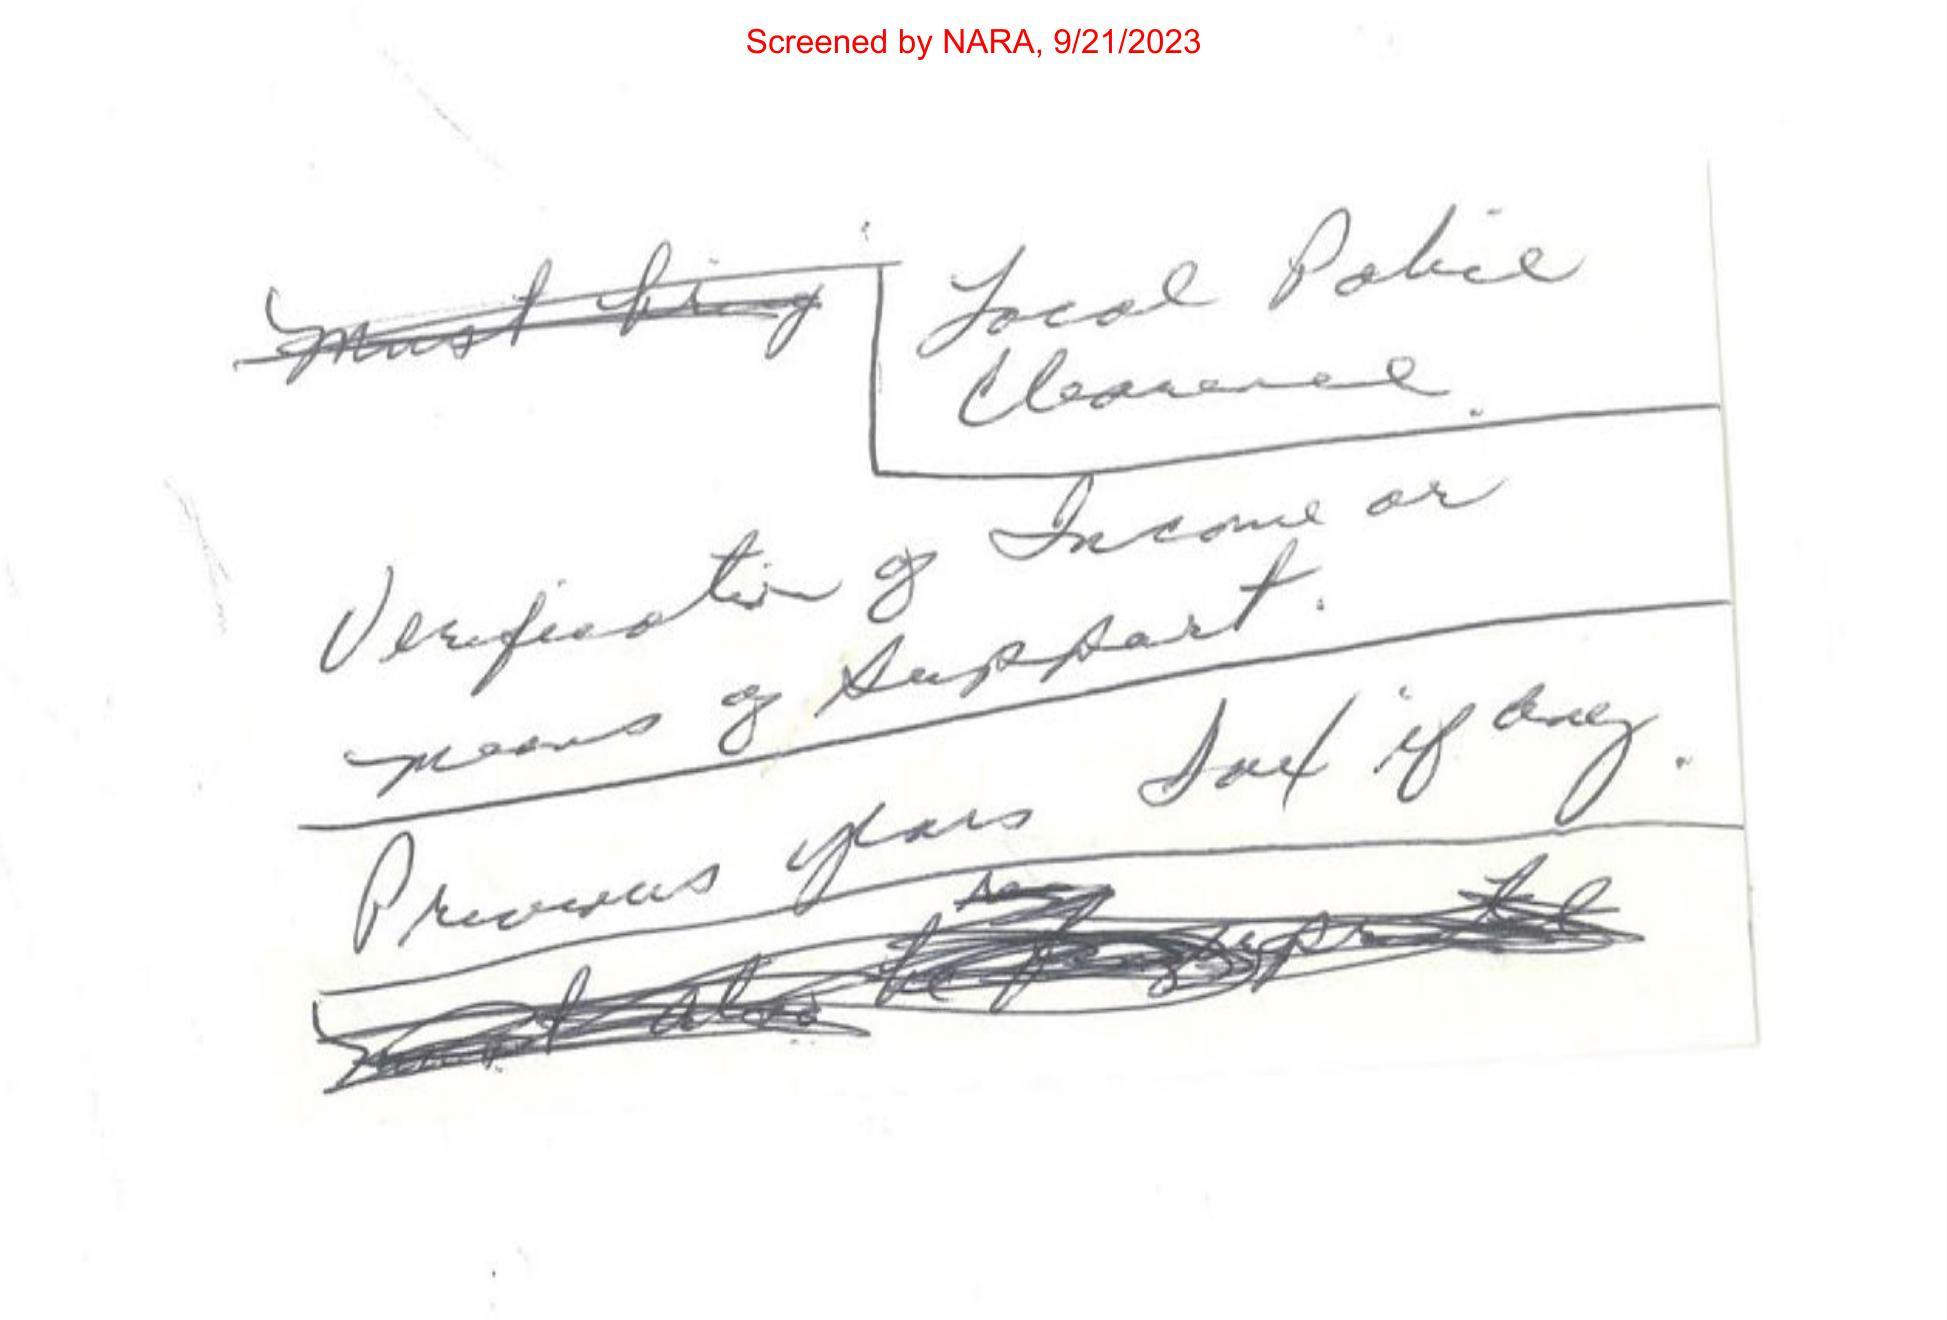 Screened by NARA, 9/21/2023
Must bring Local Police
Clearance.
Verification of Income or
means of Support.
Previous years Tax if any.
Must also be